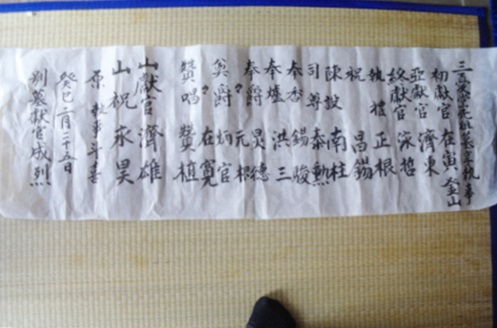 執事
初獻官 在寅 釜山
亞獻官 濟東
終獻官 泳哲
執禮 正根
祝 昌錫
陳設 南柱
司尊 泰勳
奉香 錫駿
奉爐 洪三
奉爵 炅德
〃 元根
奠爵 炳官
〃 在寬
贊唱 贊植
山獻官 濟雄
山祝 永昊
原 執事 斗喜
癸巳二月二十五日
別墓獻官成烈